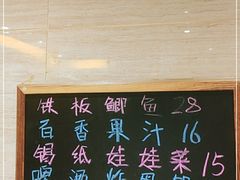 铁板鲫鱼28
百香果汁16
锡纸娃娃菜15